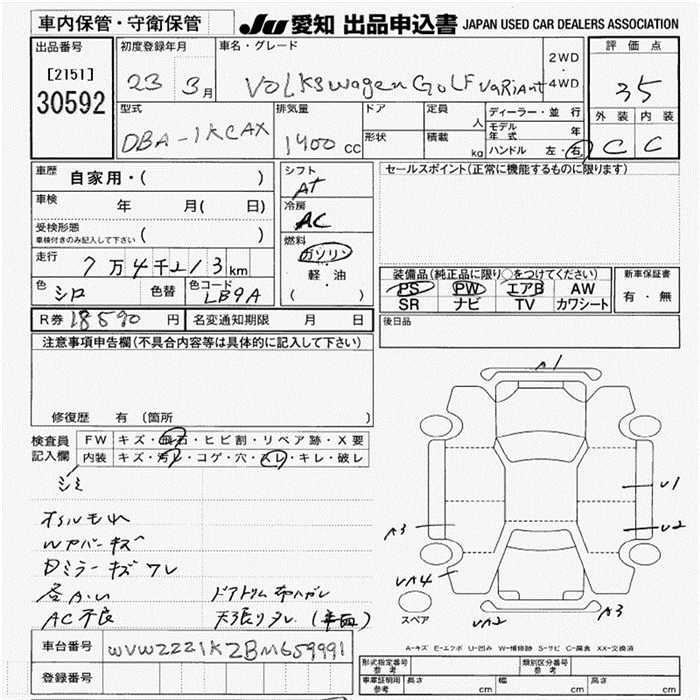 車内保管・守衛保管
JU 愛知 出品申込書 JAPAN USED CAR DEALERS ASSOCIATION
出品番号
[2151]
30592
初度登録年月
23 3月
車名・グレード
VOLKswagen GOLF VaRiant
2WD
・
4WD
評価点
35
外装 内装
C C
型式
DBA-1KCAX
排気量
1400 cc
ドア
形状
定員 人
積載 kg
ディーラー・並行
モデル年式 年
ハンドル 左・右
車歴
自家用・( )
車検 年 月( 日)
受検形態
車検付きのみ記入して下さい ( )
走行
7万4千213km
色
シロ
色替
色コード
LB9A
シフト
At
冷房
AC
燃料
ガソリン
軽・油
( )
セールスポイント(正常に機能するものに限ります)
装備品(純正品に限り○をつけてください)
PS PW エアB AW
SR ナビ TV カワシート
新車保証書
有・無
R券 18590 円
名変通知期限 月 日
後日品
注意事項申告欄(不具合内容等は具体的に記入して下さい)
修復歴 有 (箇所
検査員記入欄
FW キズ・飛石・ヒビ割・リペア跡・X要
内装 キズ・汚レ・コゲ・穴・スレ・キレ・破レ
シミ
オイルモレ
Wカバーキズ
Dミラーキズ ワレ
ドアトリム布ハガレ
AC不良
天張りタレ
A1
U1
U2
A3
UA4
UA2
A3
スペア
A-キズ E-エクボ U-凹み W-補修跡 S-サビ C-腐食 XX-交換済
車台番号
WVWZZZ1KZBM659991
登録番号
形式指定番号
参考
類別区分番号
参考
車庫証明用
参考
長さ cm
幅 cm
高さ cm